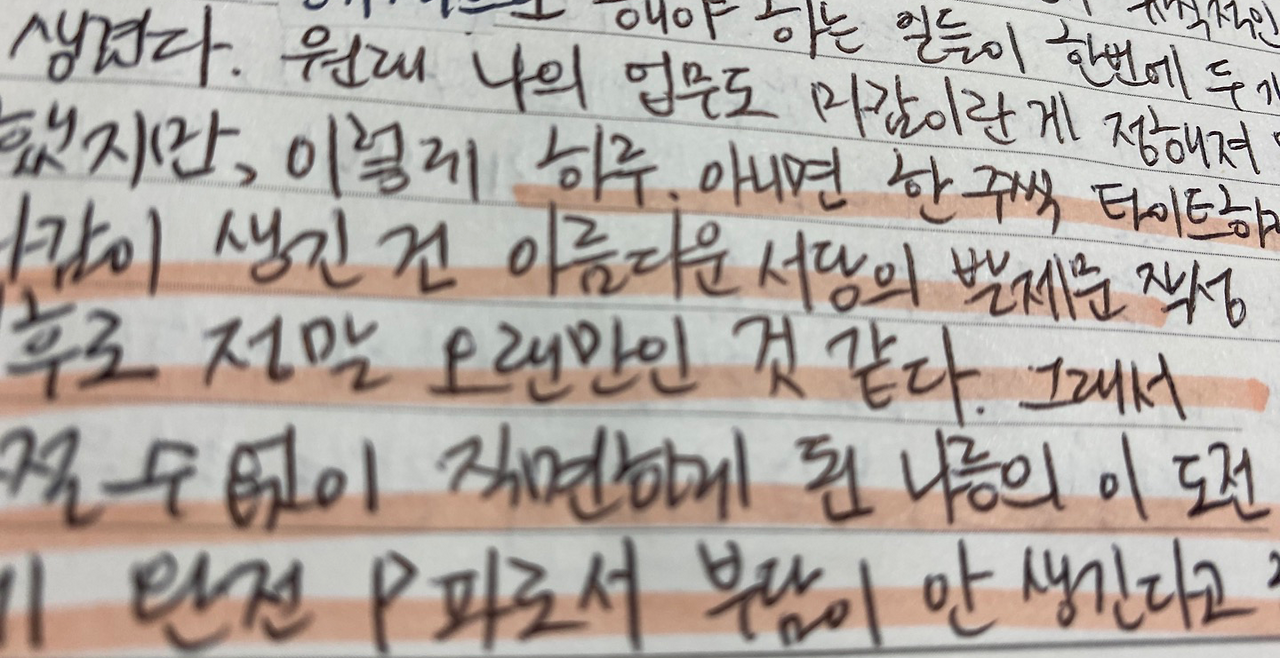 해야 하는 일들이 한번에 두
생겼다. 원래 나의 업무도 마감이란 게 정해져
했지만, 이렇게 하루. 아니면 한 주씩 타이트하
마감이 생긴 건 아름다운 서당의 발제문 작성
후로 정말 오랜만인 것 같다. 그래서
쩔 수 없이 직면하게 된 나름의 이 도전
완전 P파로서 부담이 안 생긴다고